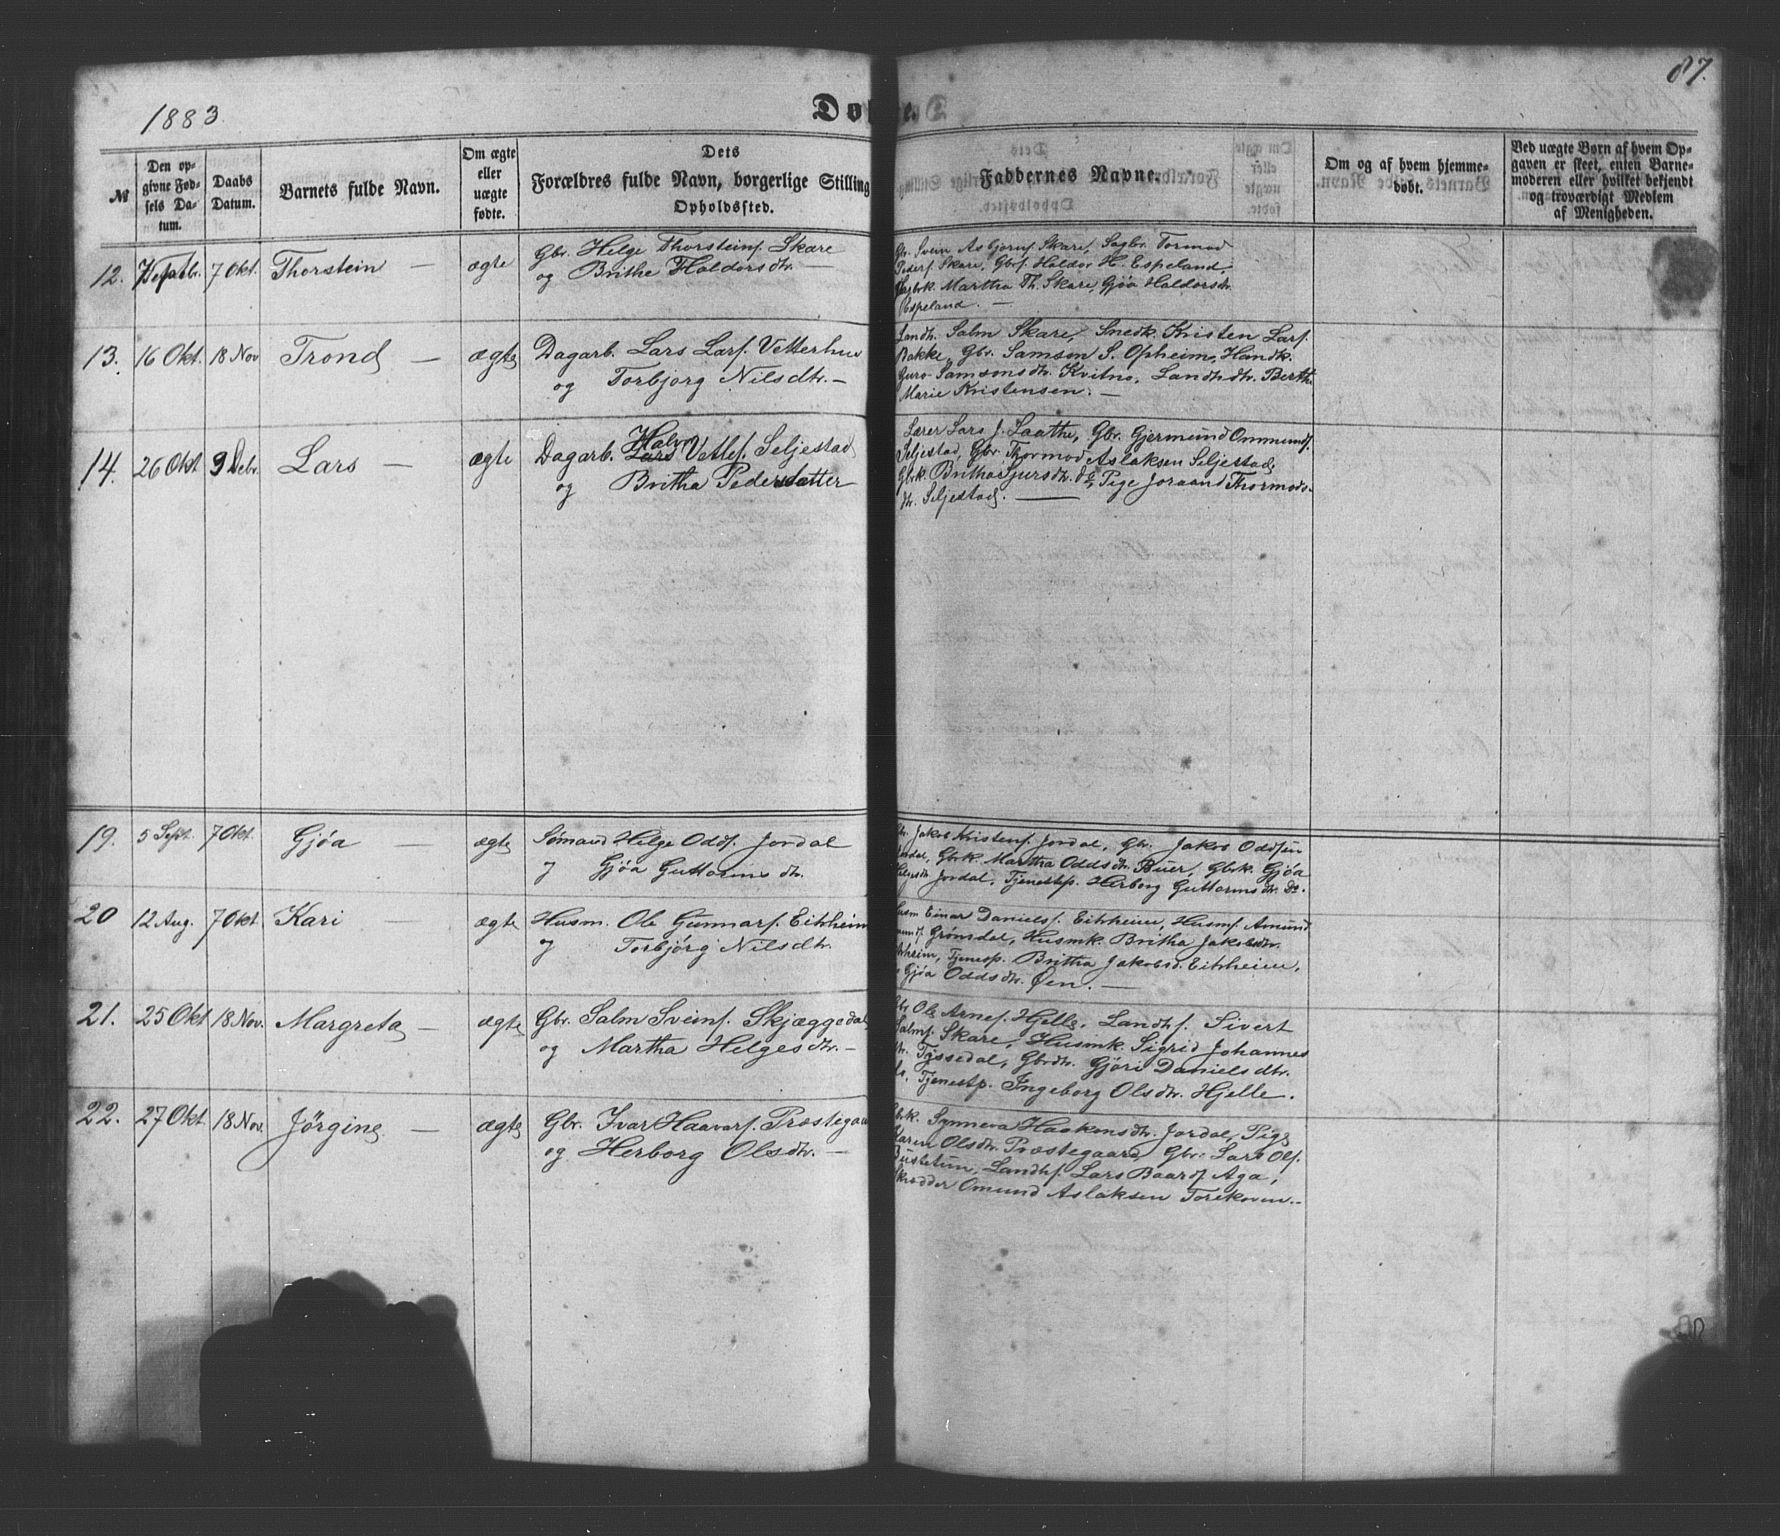 1883
87.
Døb
e.
№
Den opgivne Fødsels Datum.
Daabs Datum.
Barnets fulde Navn.
Om ægte eller uægte fødte.
Dets
Forældres fulde Navn, borgerlige Stilling
Opholdssted.
Faddernes Navne.
Om og af hvem hjemmedøbt.
Ved uægte Børn af hvem Opgaven er skeet, enten Barnemoderen eller hvilket bekjendt og troværdigt Medlem af Menigheden.
12. 7 Septbr. 7 Okt. Thorstein — ægte
Gbr. Helge Thorsteins. Skare
og Brithe Haldorsdtr. —
Gbr. Svein Asgjerns. Skare, Sagbr. Tormod
Peders. Skare, Gbrs. Haldor H. Espeland,
Martha Th. Skare, Gjøa Haldorsdtr.
Espeland. —
13. 16 Okt. 18 Nov Trond — ægte
Dagarb. Lars Lars. Vetterhus
og Torbjorg Nilsdtr. —
Landh. Salm Skare, Snedk. Kristen Lars.
Bakke, Gbr. Samson S. Opheim, Handk.
Guro Samsonsdtr. Kvitno, Landhdtr. Berth
Marie Kristensen. —
14. 26 Okt 9 Debr. Lars — ægte
Halvor
Dagarb. Lars Vetles. Seljestad
og Britha Pedersdatter
Lærer Lars J. Laathe, Gbr. Gjermund Ommunds.
Seljestad, Gbr. Thormod Aslaksen Seljestad,
Gbrk. Britha Sjursdtr. do, Pige Joraand Thormods-
dtr. Seljestad. —
19. 5 Sept. 7 Okt. Gjøa — ægte
Sømand Helge Odds. Jordal
og Gjøa Guttormsdtr.
Gbr. Jakob Kristens. Jordal, Gbr. Jakob Oddsen
Jordal, Gbrk. Martha Oddsdtr. Buer, Gbrk. Gjøa
Helgesdtr. Jordal, Tjenestep. Herborg Guttormsdtr. do.
20 12 Aug. 7 Okt. Kari — ægte
Husm. Ole Gunnars. Eitrheim
og Torbjörg Nilsdtr.
Husm Einar Daniels. Eitrheim, Husms. Amund
Grönsdal, Husmk. Britha Jakobsdtr.
Eitrheim, Tjenestp. Britha Jakobsd. Eitrheim,
Gjøa Oddsdtr. Øen. —
21. 25 Okt 18 Nov. Margreta — ægte
Gbr. Salm Sveins. Skjæggedal
og Martha Helgesdtr. —
Gbr Ole Arnes. Hjelle, Landhs. Sivert
Salms. Skare, Husmk. Sigrid Johannes
dtr. Tyssedal, Gbrdtr. Gjöri Danielsdtr.
do. Tjenestp. Ingeborg Olsdtr. Hjelle.
22. 27 Okt 18 Nov. Jörgine — ægte
Gbr. Ivar Haavars. Præstegaa
og Herborg Olsdtr. —
Gbrk. Synneva Haakonsdtr. Jordal, Pige
Karen Olsdtr. Præstegaard, Gbr. Lars Ols.
Bustetun, Landhs. Lars Baards. Aga,
Skrædder Omund Aslaksen Torekoven. —